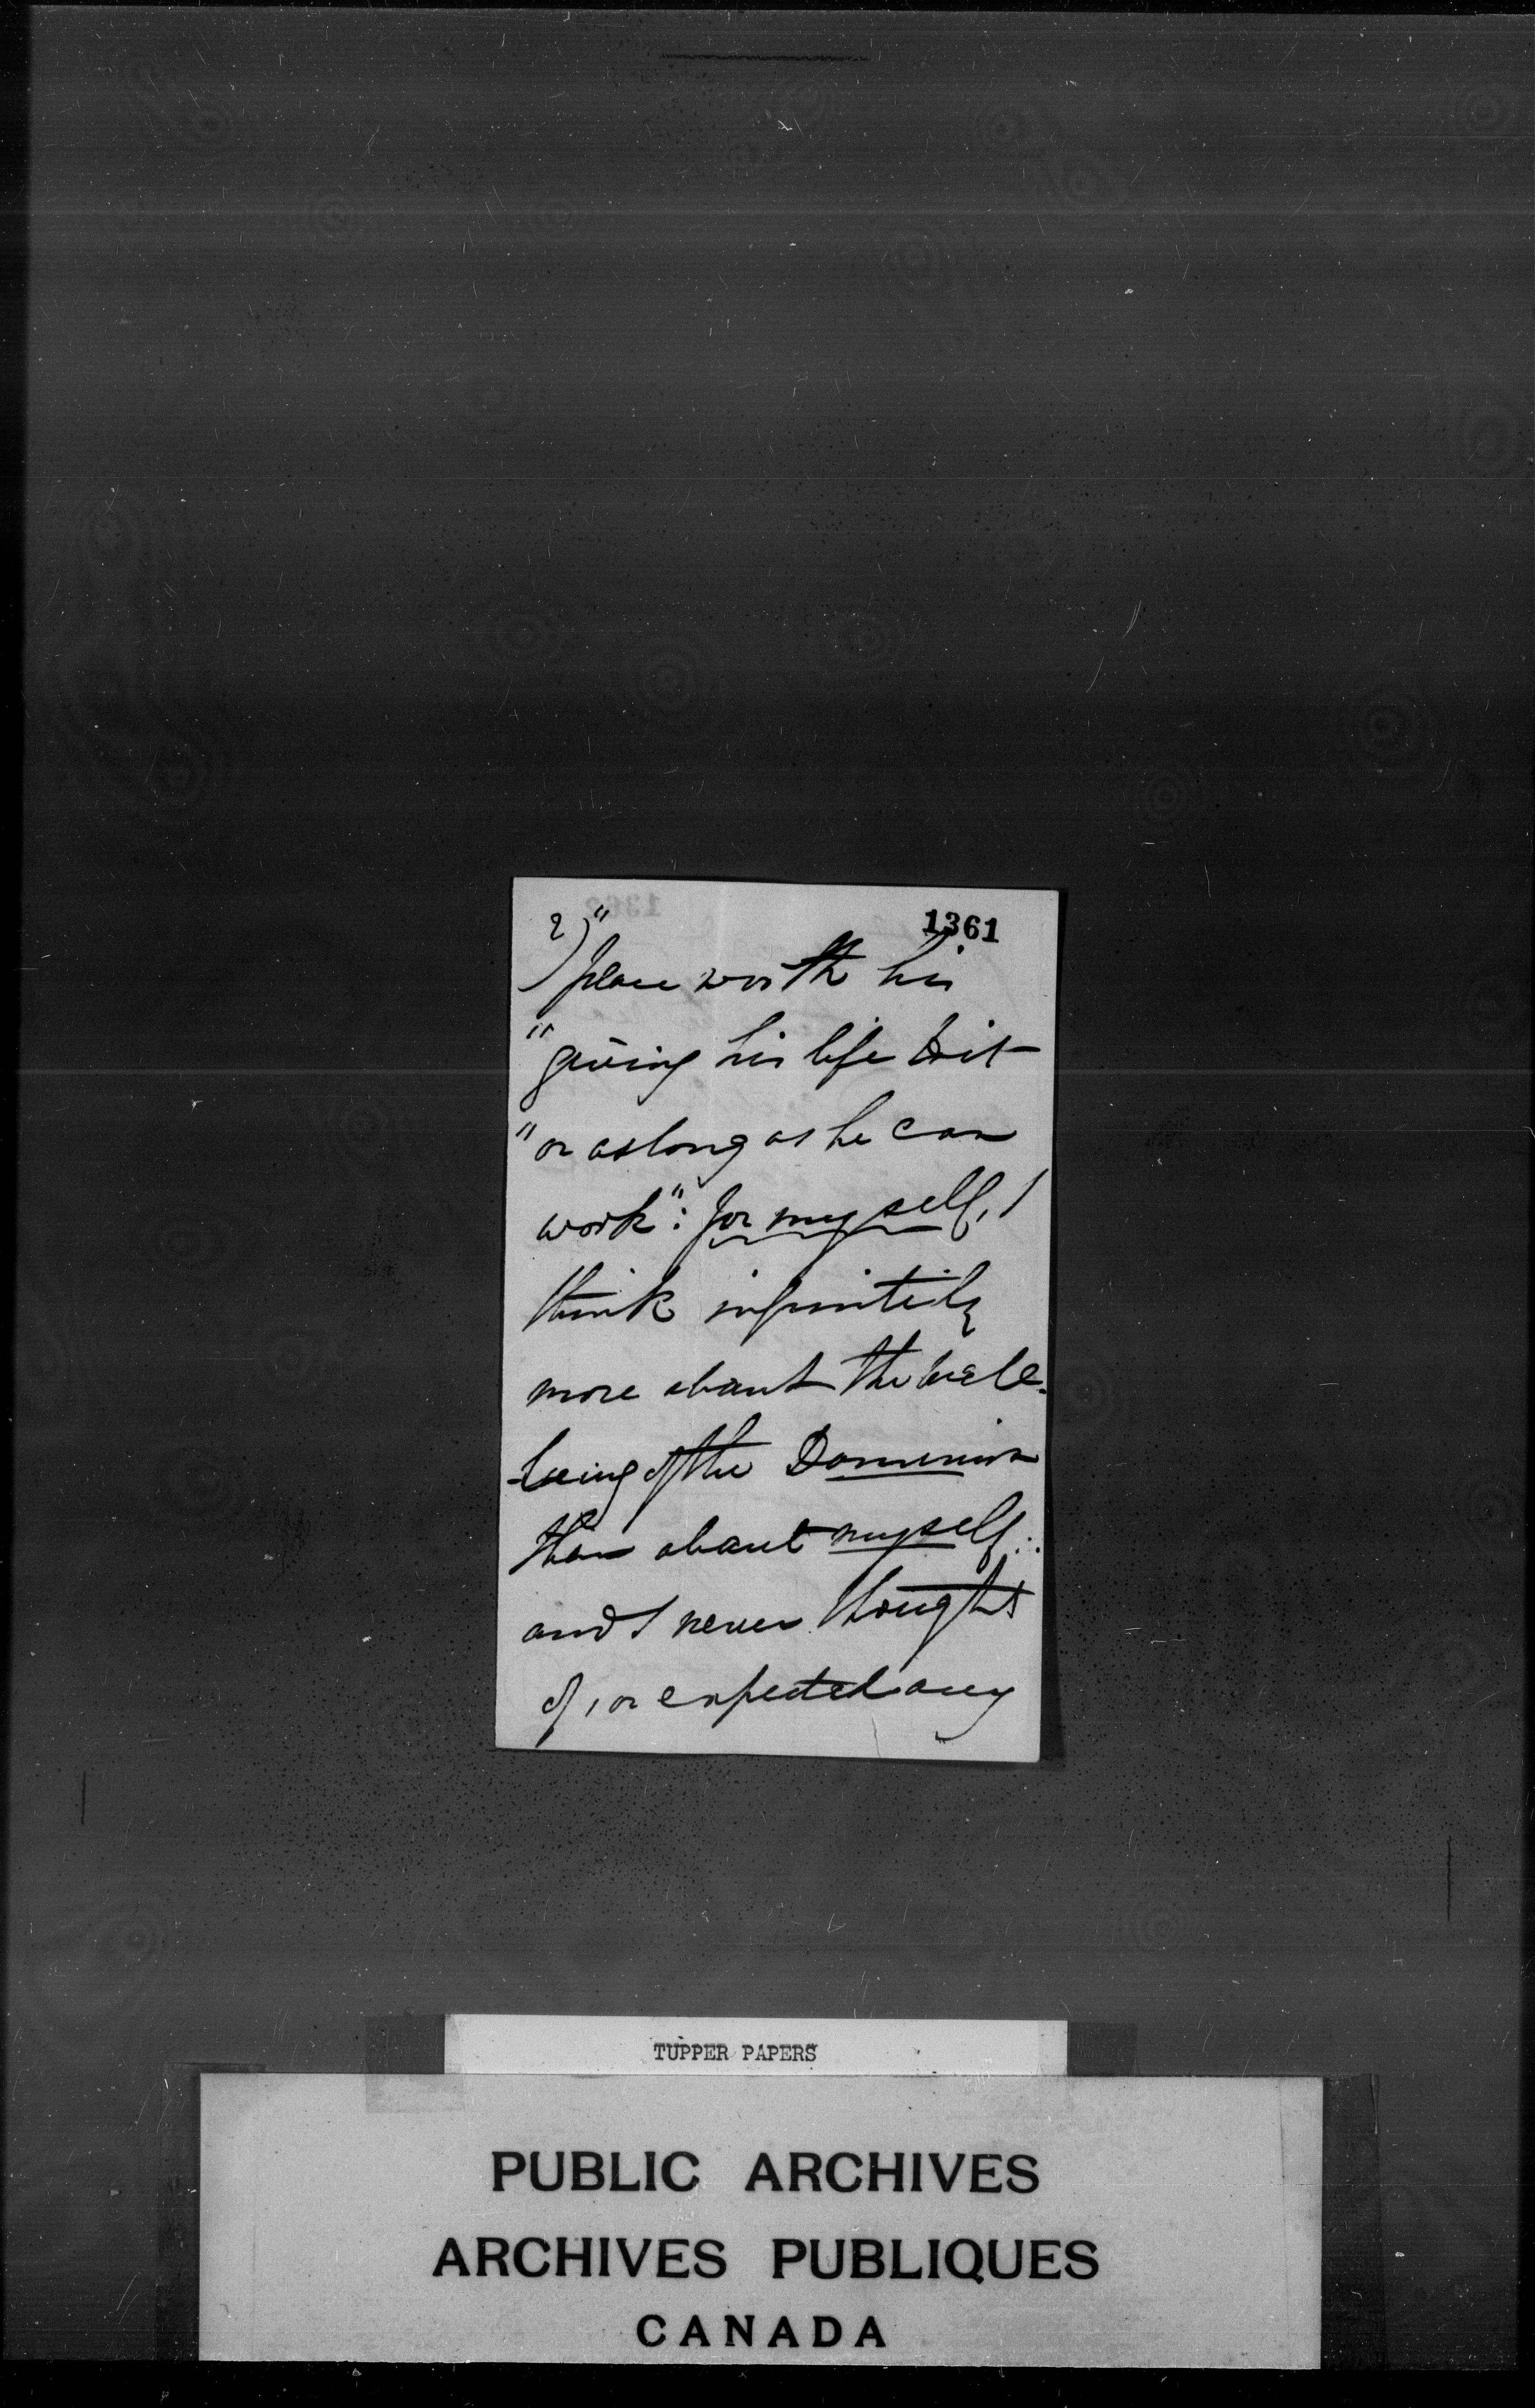 2) 1361
" place worth his
" giving his life to it
" or as long as he can
work": for myself, I
think infinitely
more about the well-
-being of the Dominion
than about myself:
and I never thought
of, or expected any
TUPPER PAPERS
PUBLIC ARCHIVES
ARCHIVES PUBLIQUES
CANADA